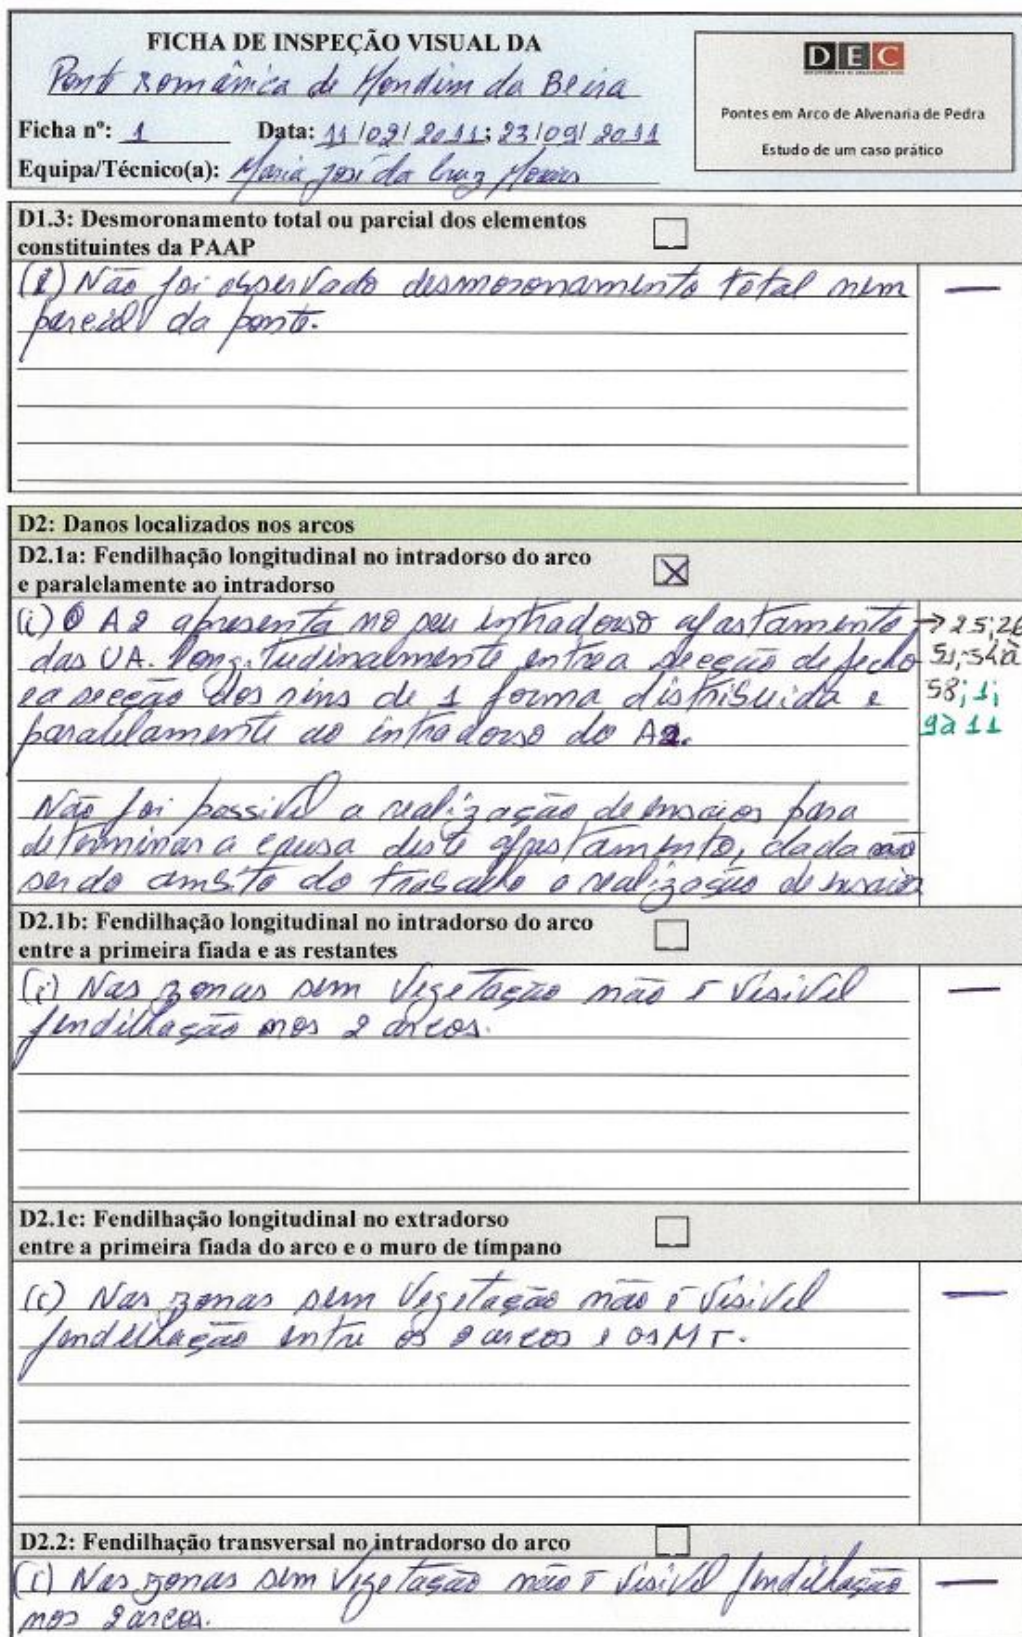 FICHA DE INSPEÇÃO VISUAL DA
Ponte românica de Mondim da Beira
Ficha nº: 1 Data: 11/02/2011; 23/09/2011
Equipa/Técnico(a): Maria José da Cruz
DEC
Pontes em Arco de Alvenaria de Pedra
Estudo de um caso prático
D1.3: Desmoronamento total ou parcial dos elementos
constituintes da PAAP
(i) Não foi observado desmoronamento total nem
parcial da ponte.
—
D2: Danos localizados nos arcos
D2.1a: Fendilhação longitudinal no intradorso do arco
e paralelamente ao intradorso
X
(i) O A2 apresenta no seu intradorso afastamento
das UA. Longitudinalmente entre a secção de fecho
e a secção dos rins de 1 forma distribuida e
paralelamente ao intradorso do A2.
→ 25; 26
51; 54 a
58; 1;
9 a 11
Não foi possivel a realização de ensaios para
determinar a causa deste afastamento, dada não
sendo ambito do trabalho a realização de ensaios
D2.1b: Fendilhação longitudinal no intradorso do arco
entre a primeira fiada e as restantes
(i) Nas zonas sem vegetação não é visivel
fendilhação nos 2 arcos.
—
D2.1c: Fendilhação longitudinal no extradorso
entre a primeira fiada do arco e o muro de tímpano
(i) Nas zonas sem vegetação não é visivel
fendilhação entre os 2 arcos e os MT.
—
D2.2: Fendilhação transversal no intradorso do arco
(i) Nas zonas sem vegetação não é visivel fendilhação
nos 2 arcos.
—